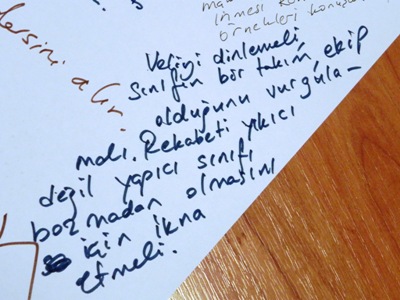 dersini alır.
örnekleri konuşu
Veliyi dinlemeli,
sınıfın bir takım, ekip
olduğunu vurgula-
malı. Rekabeti yıkıcı
değil yapıcı sınıfı
bozmadan olmasını
için ikna
etmeli.